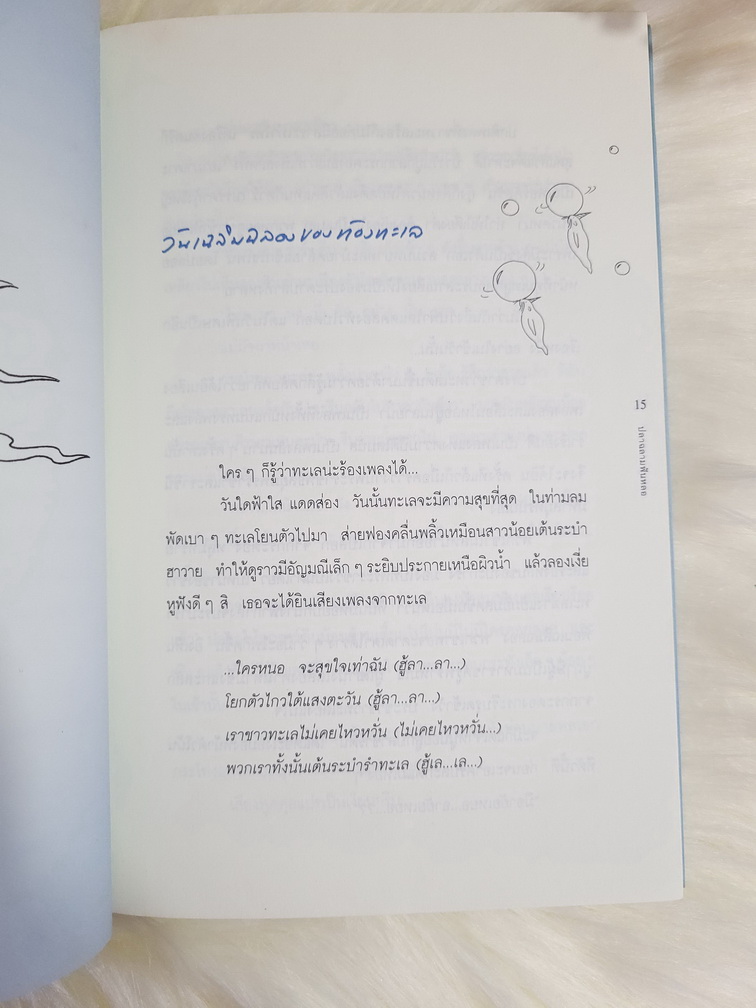 วันเฉลิมฉลองของท้องทะเล
15
ใคร ๆ ก็รู้ว่าทะเลน่ะร้องเพลงได้...
วันใดฟ้าใส แดดส่อง วันนั้นทะเลจะมีความสุขที่สุด ในท่ามลม
พัดเบา ๆ ทะเลโยนตัวไปมา ส่ายฟองคลื่นพลิ้วเหมือนสาวน้อยเต้นระบำ
ฮาวาย ทำให้ดูราวมีอัญมณีเล็ก ๆ ระยิบประกายเหนือผิวน้ำ แล้วลองเงี่ย
หูฟังดี ๆ สิ เธอจะได้ยินเสียงเพลงจากทะเล
...ใครหนอ จะสุขใจเท่าฉัน (ฮู้ลา...ลา...)
โยกตัวไกวใต้แสงตะวัน (ฮู้ลา...ลา...)
เราชาวทะเลไม่เคยไหวหวั่น (ไม่เคยไหวหวั่น...)
พวกเราทั้งนั้นเต้นระบำรำทะเล (ฮู้เล...เล...)